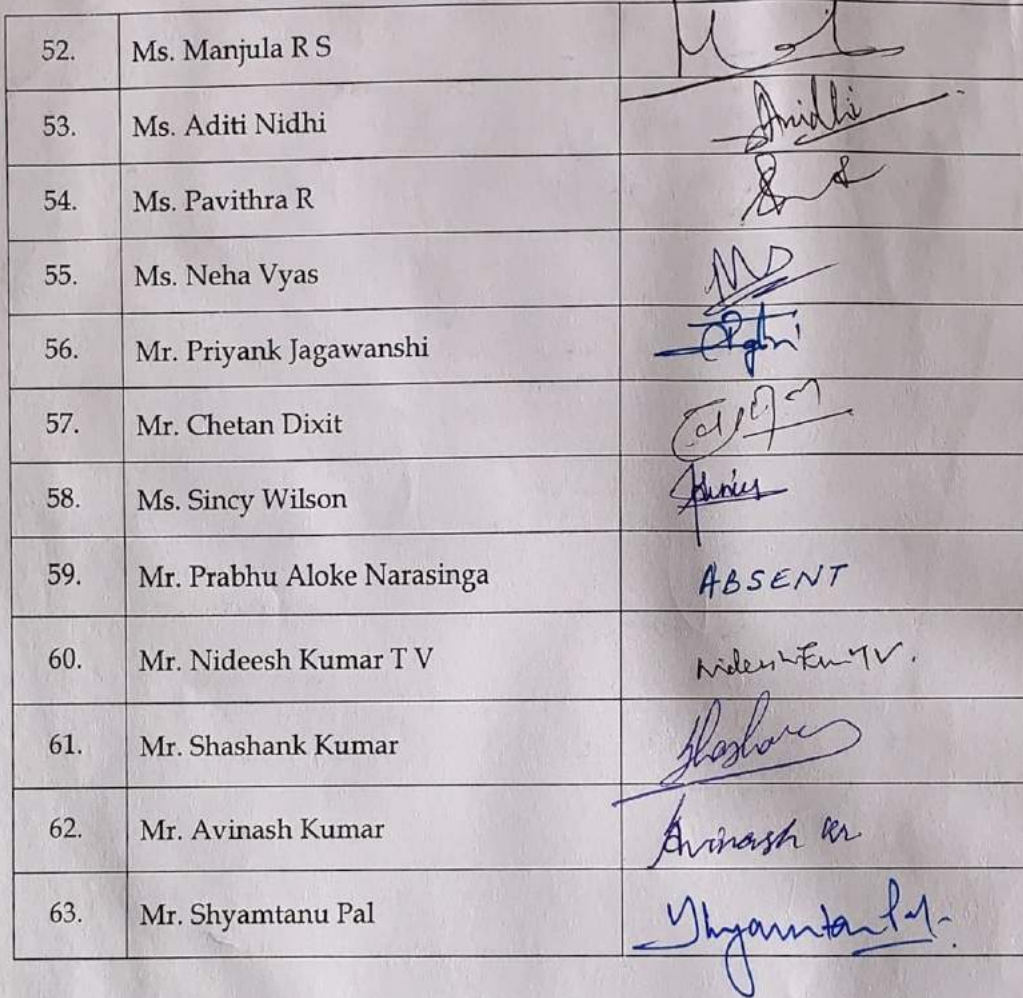 52. Ms. Manjula R S
53. Ms. Aditi Nidhi Anidhi
54. Ms. Pavithra R
55. Ms. Neha Vyas
56. Mr. Priyank Jagawanshi
57. Mr. Chetan Dixit
58. Ms. Sincy Wilson
59. Mr. Prabhu Aloke Narasinga ABSENT
60. Mr. Nideesh Kumar T V
61. Mr. Shashank Kumar
62. Mr. Avinash Kumar Avinash Kr
63. Mr. Shyamtanu Pal